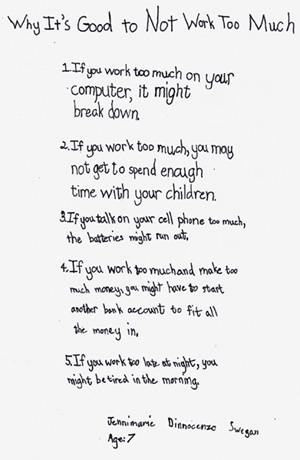 Why It's Good to Not Work Too Much
1. If you work too much on your
computer, it might
break down.
2. If you work too much, you may
not get to spend enough
time with your children.
3. If you talk on your cell phone too much,
the batteries might run out.
4. If you work too much and make too
much money, you might have to start
another bank account to fit all
the money in.
5. If you work too late at night, you
might be tired in the morning.
Jennimarie Dinnocenzo Swegan
Age: 7